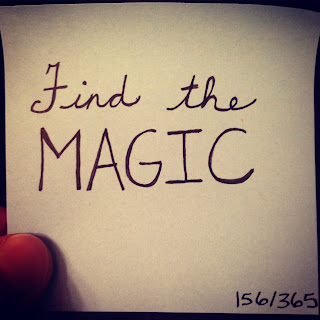 Find the
MAGIC
156/365